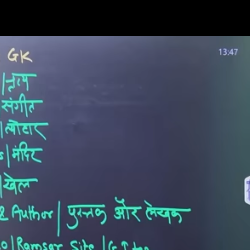 GK
13:47
/नृत्य
संगीत
/त्योहार
s/मंदिर
/खेल
& Author / पुस्तक और लेखक
o / Ramsar Site / GI tag